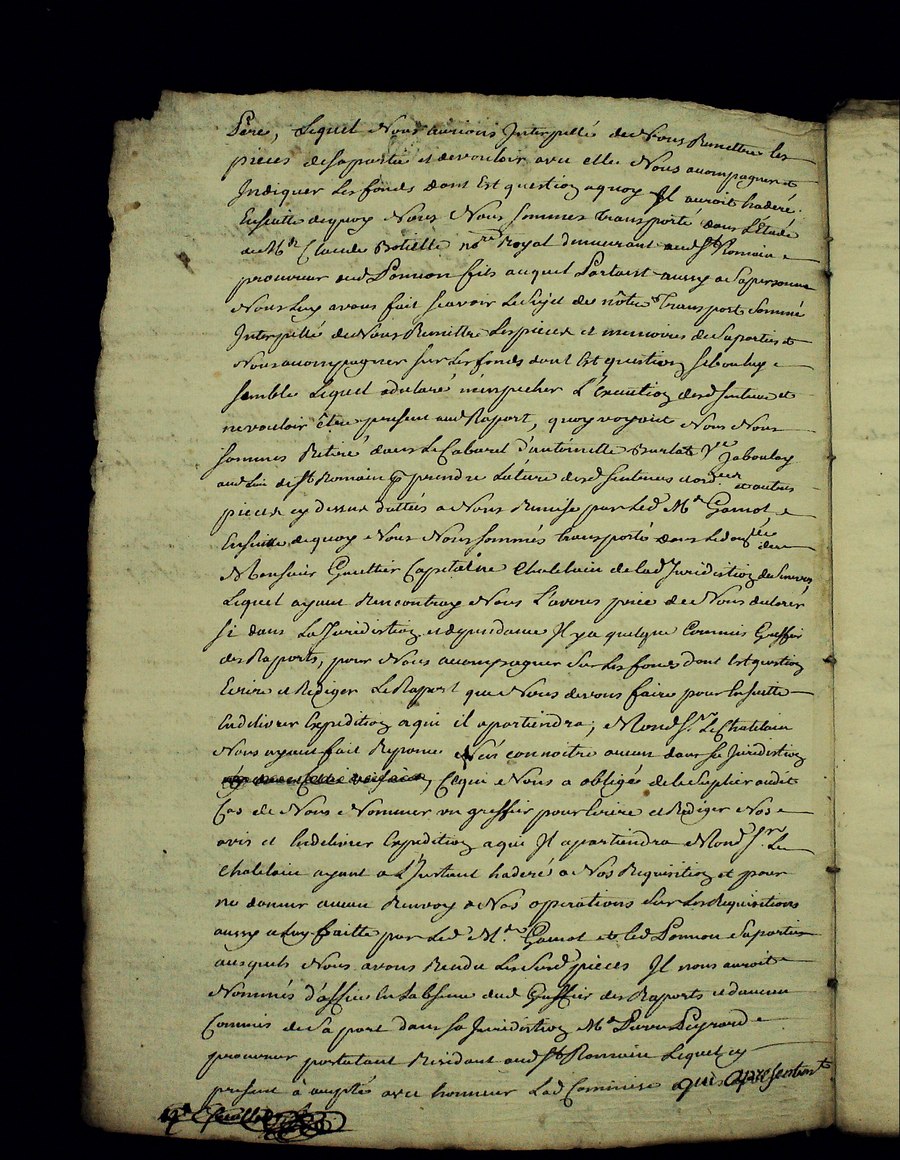 Père, Lequel Nous aurions Interpellé de Nous Remettre les
pieces de sa partie et de vouloir avec elle Nous acompagner et
Indiquer Les fonds dont Est question a quoy Il auroit haderé.
Ensuitte de quoy Nous Nous sommes transporté dans L'Etude
de Mr Claude Royal demeurant aud St Romain
procureur dud Ponson fils auquel Parlant aussy a sa personne
Nous Luy avons fait scavoir Le Sujet de nôtre Transport Sommé
Interpellé de Nous Remettre Les pieces et memoires de sa partie et
Nous acompagner sur Les fonds dont Est question si bon luy
semble Lequel a declaré n'empecher L'execution desd sentence et
ne vouloir être present aud Raport, quoy voyant Nous Nous
sommes Retiré dans Le Cabaret d'antoinette Ve Jaboulay
aud Lieu de St Romain pr prendre Lecture desd sentences et autres
pieces cy dessus dattées a Nous Remise par Led Mr Gamot
Ensuitte de quoy Nous Nous sommés transporté dans Le de
Monsieur Gaultier Capitaine Chatelain de lad Juridiction de
Lequel ayant Rencontray Nous L'avons prié de Nous declarer
si dans La Juridiction et dependance Il y a quelque Commis Greffier
des Raports, pour Nous acompagner sur Les fonds dont Est question
Ecrire et Rediger Le Raport que Nous devons faire pour Ensuitte
En delivrer Expedition a qui il apartiendra; Mond Sr Le Chatelain
Nous ayant fait Reponce N'en connoitre aucun dans sa Juridiction
Ce qui Nous a obligés de le Suplier audit
Cas de Nous Nommer un greffier pour Ecrire et Rediger Nos
avis et En delivrer Expedition a qui Il apartiendra Mond Sr Le
Chatelain ayant a L'Instant haderé a Nos Requisition et pour
ne donner aucun Renvoy a Nos operations Sur Les Requisitions
aussy a Luy faitte par Led Mr Gamot et led Ponson Sa partie
ausquels Nous avons Rendu Les Susd pieces Il nous auroit
Nommés d'office En Labsence dud Greffier des Raports et d'aucun
Commis de Sa part dans sa Juridiction Me Pierre Peyrard
procureur postulant Residant aud St Romain Lequel cy
present à acepté avec honneur Lad Commission